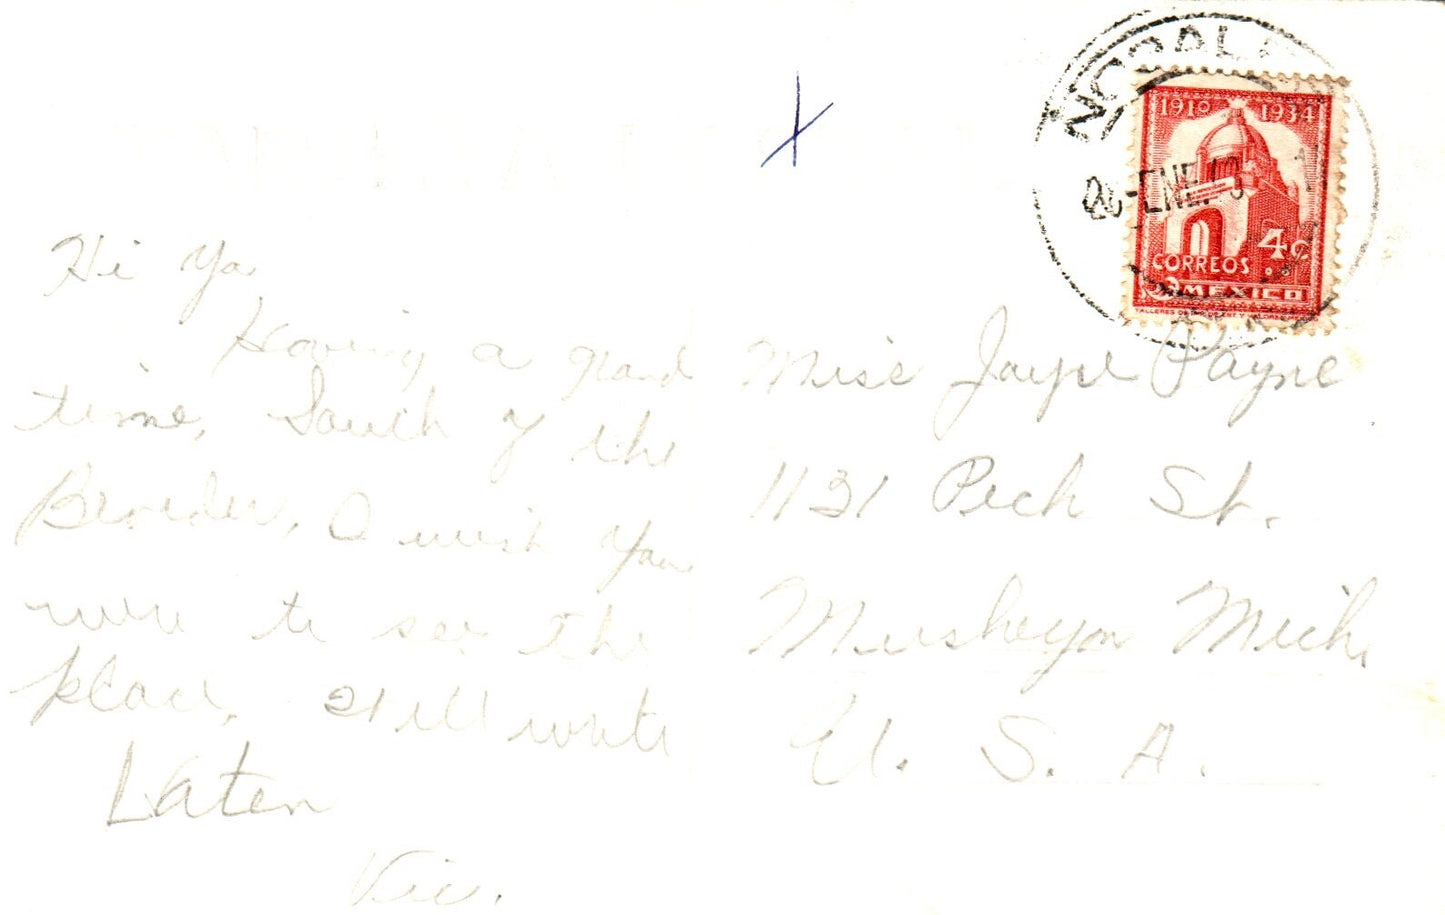 NOGALE
20-ENE.
1910 1934
4¢
CORREOS
MEXICO
Hi Ya
Having a grand
time, South of the
Beorder, I wish you
were to see the
place, I'll write
Later
Vic.
Miss Joyse Payne
1131 Peck St.
Muskegon Mich.
U. S. A.